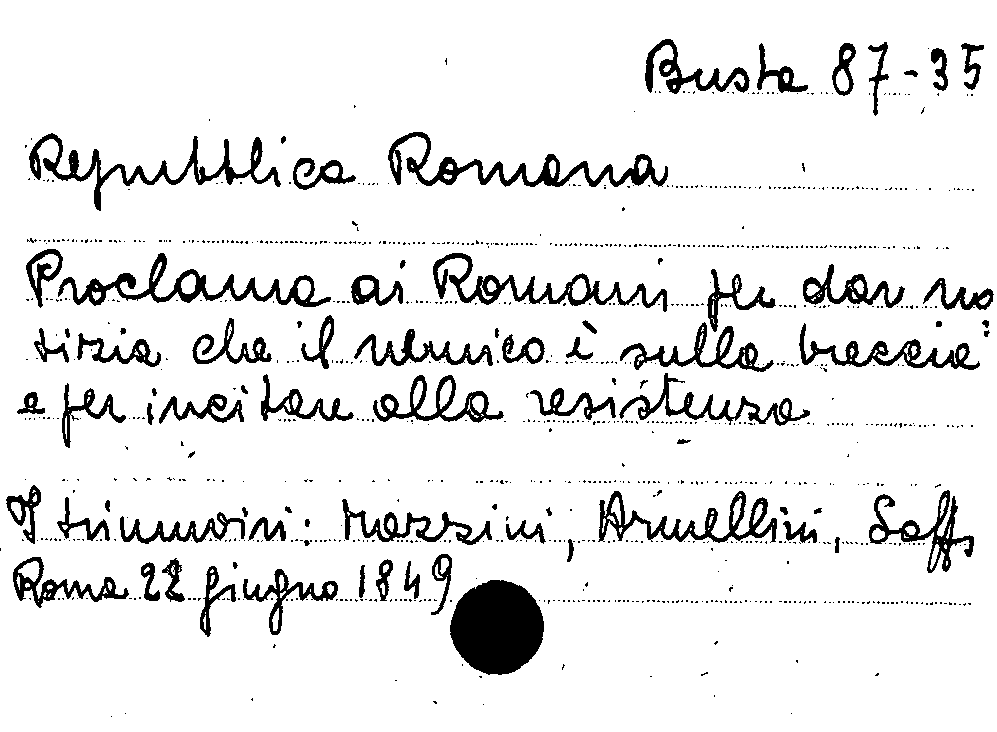 Busta 87-35
Repubblica Romana
Proclama ai Romani per dar no
tizia che il nemico è sulla breccia
e per incitare alla resistenza
I triumviri: Mazzini, Armellini, Saffi
Roma 22 giugno 1849